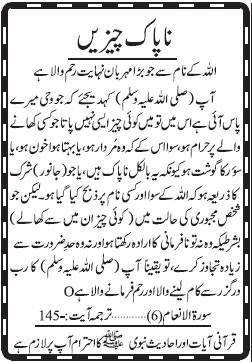 ناپاک چیزیں
اللہ کے نام سے جو بڑا مہربان نہایت رحم والا ہے
آپ (صلی اللہ علیہ وسلم) کہہ دیجئے کہ جو وحی میرے
پاس آئی ہے اس میں تو میں کوئی چیز ایسی نہیں پاتا جو کسی کھانے
والے پر حرام ہو، سوا اس کے کہ وہ مردار ہو، یا بہتا ہوا خون ہو، یا
سؤر کا گوشت ہو کیونکہ یہ بالکل ناپاک ہیں، یا جو (جانور) شرک
کا ذریعہ ہو کہ اللہ کے سوا اور کسی نام پر ذبح کیا گیا ہو لیکن جو
شخص مجبوری کی حالت میں (کوئی چیز ان میں سے کھالے)
بشرطیکہ وہ نہ تو نافرمانی کا ارادہ رکھتا ہو اور نہ وہ حد ضرورت سے
زیادہ تجاوز کرے، تو یقیناً آپ (صلی اللہ علیہ وسلم) کا رب
درگزر سے کام لینے والا اور رحم فرمانے والا ہے O
سورۃ الانعام (6)............ترجمہ آیت:-145
قرآنی آیات اور احادیث نبوی ﷺ کا احترام آپ پر لازم ہے